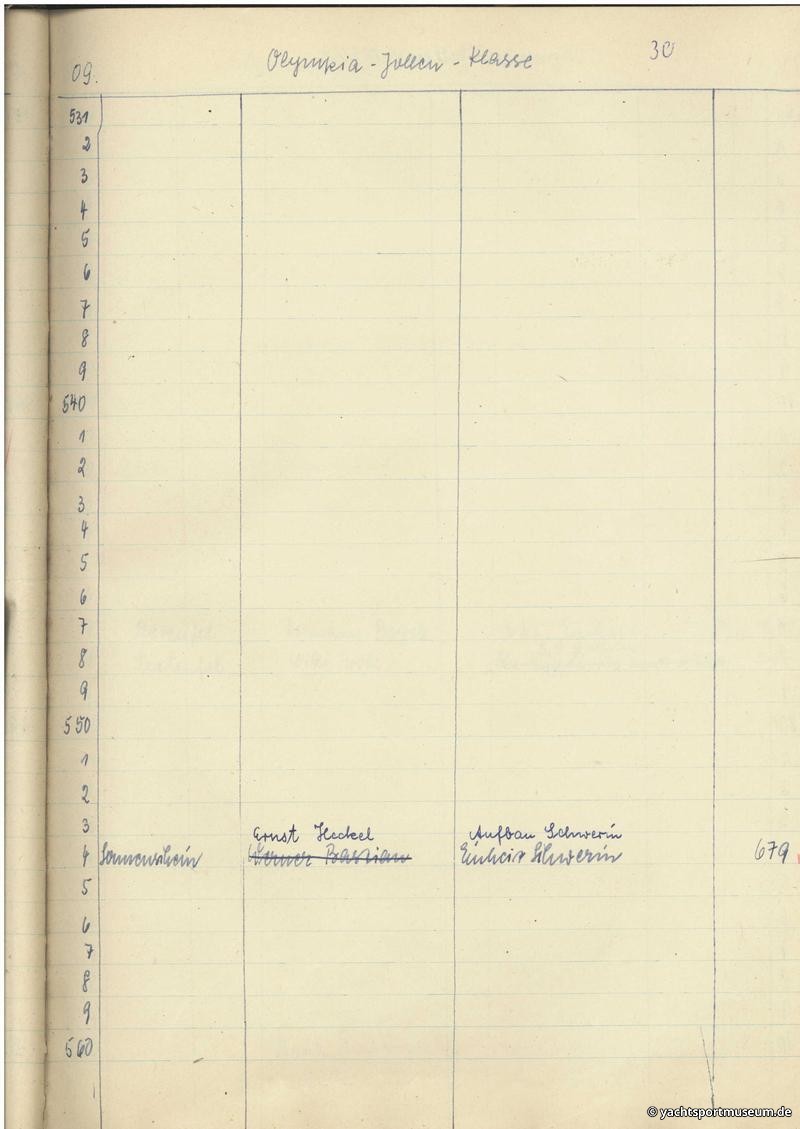 09. Olympia - Jollen - Klasse 30
531
2
3
4
5
6
7
8
9
540
1
2
3
4
5
6
7
8
9
550
1
2
3 Ernst Heckel Aufbau Schwerin
4 Sonnenschein Werner Bastian Einheit Schwerin 679
5
6
7
8
9
560
© yachtsportmuseum.de